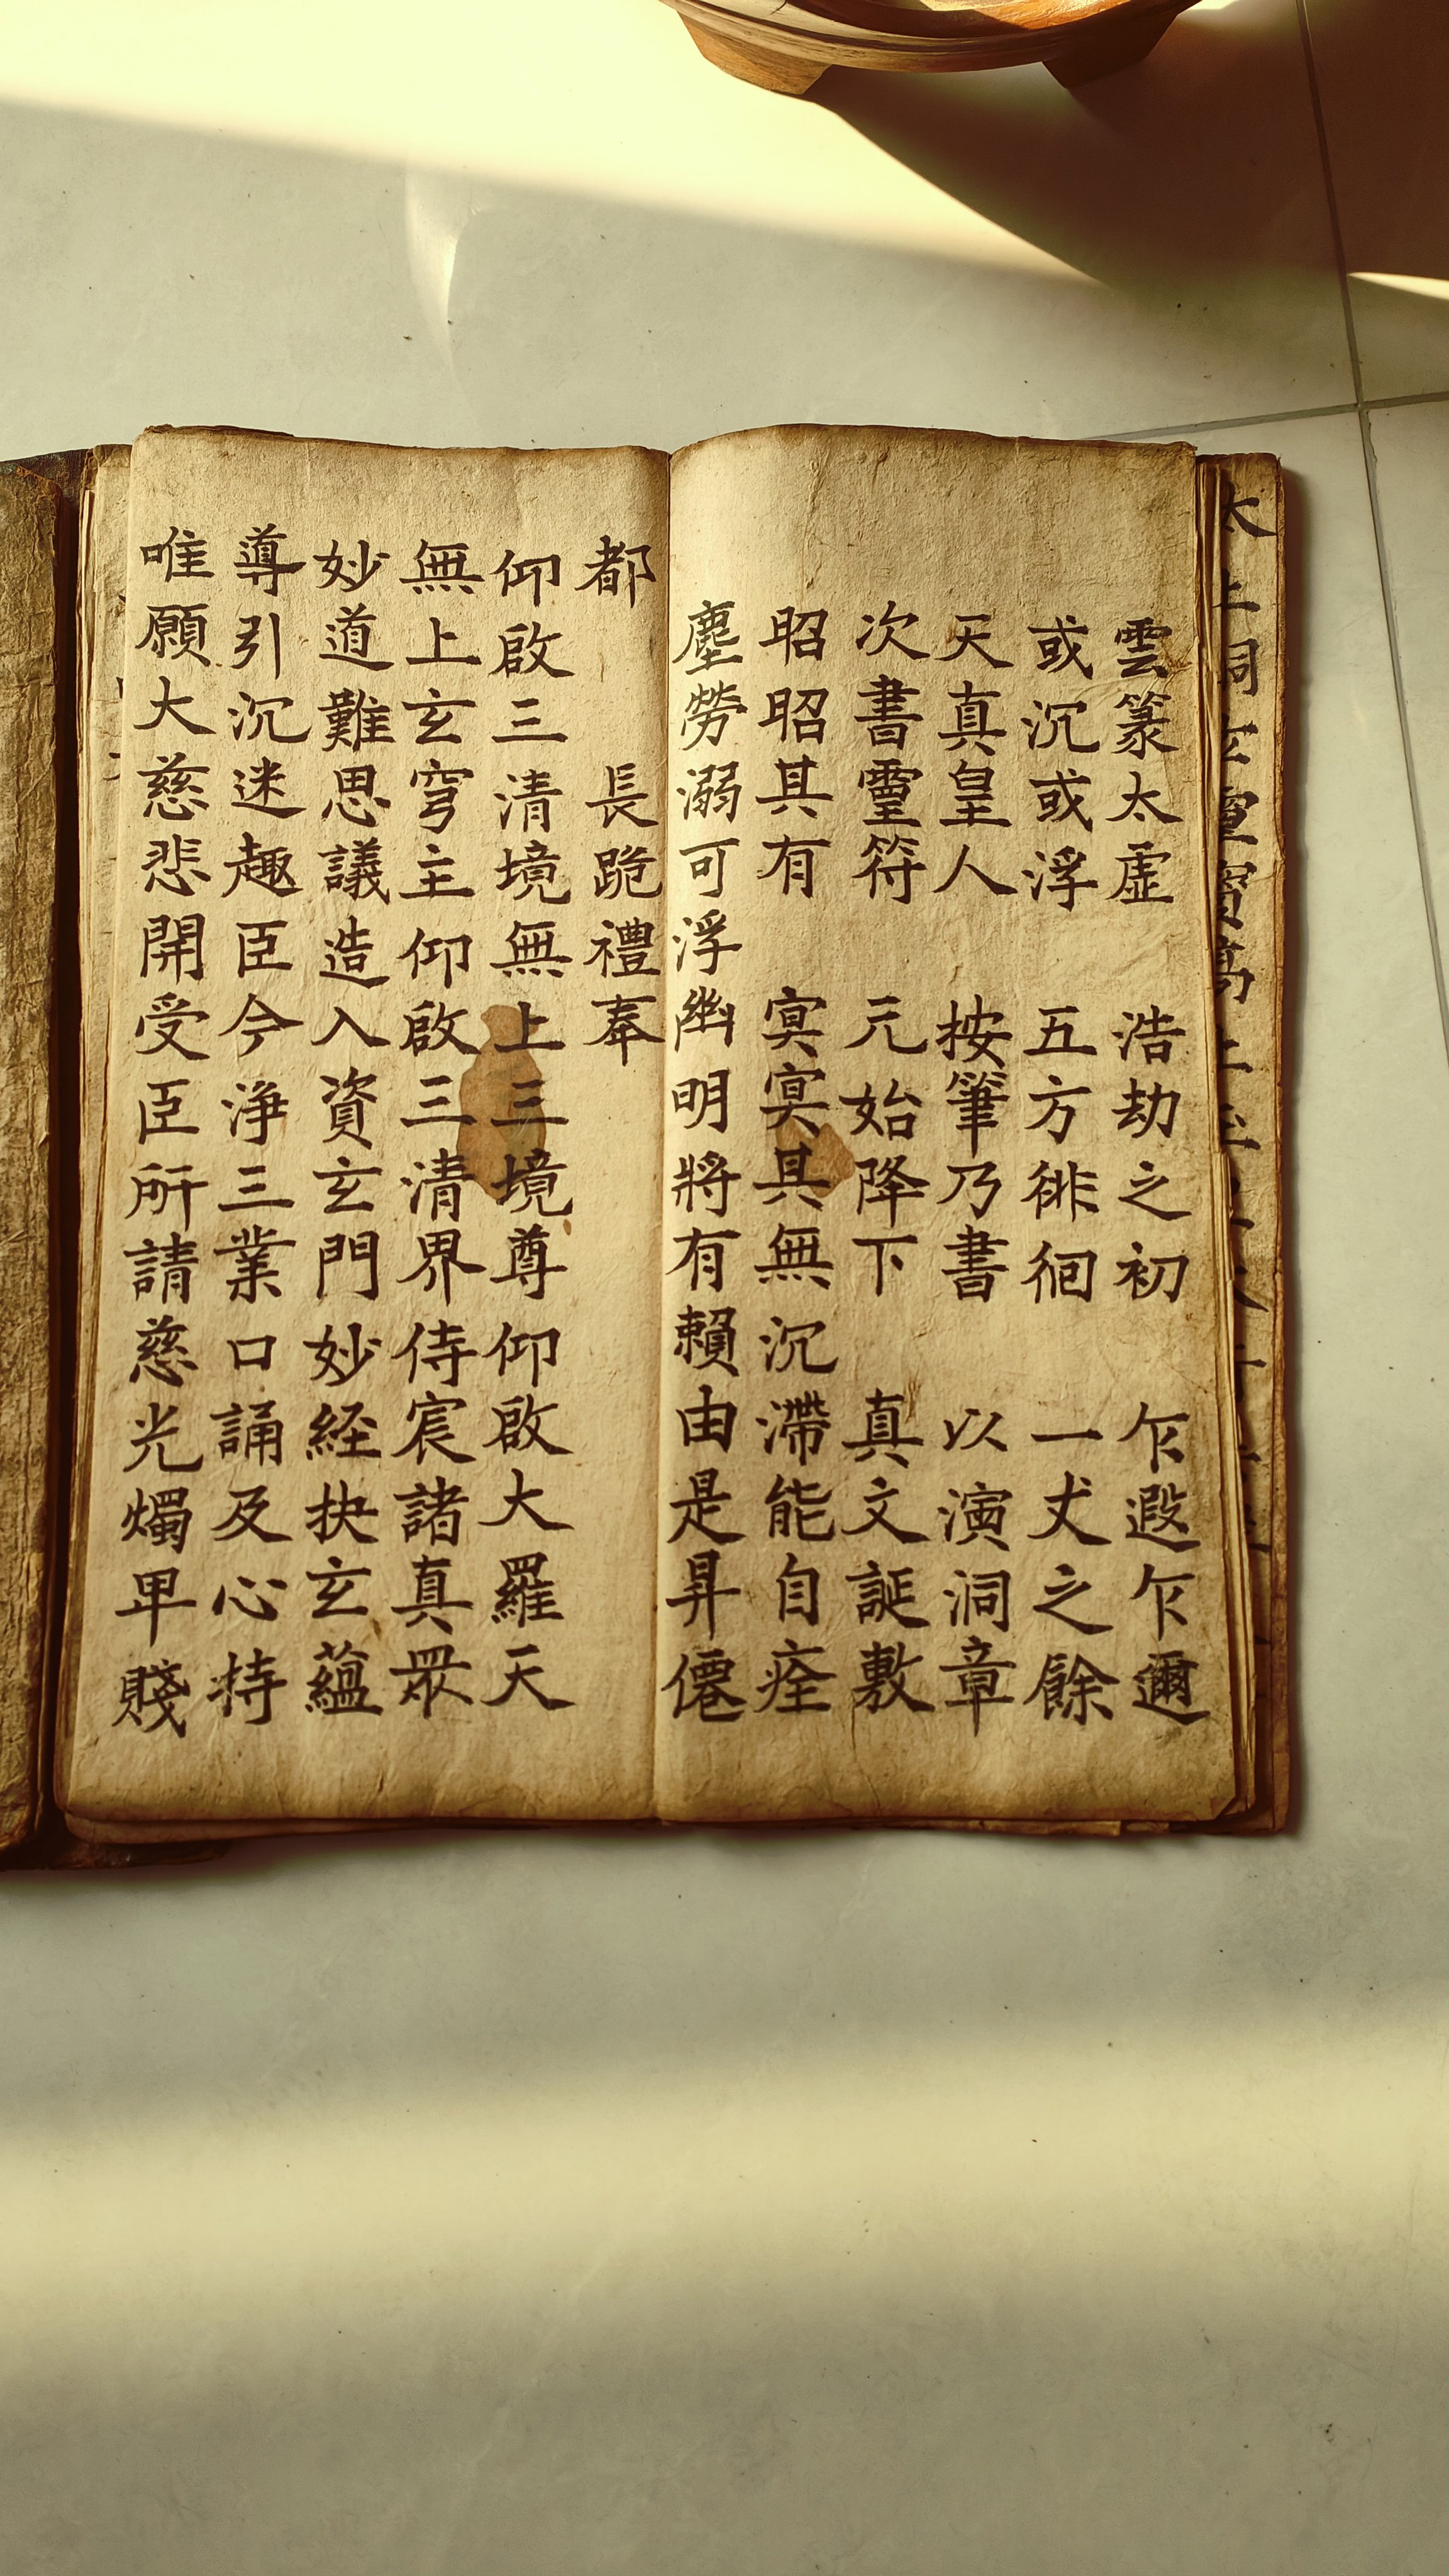 雲篆太虛　浩劫之初　乍遐乍邇
或沉或浮　五方徘徊　一丈之餘
天真皇人　按筆乃書　以演洞章
次書靈符　元始降下　真文誕敷
昭昭其有　冥冥其無沉滯能自痊
塵勞溺可浮幽明將有賴由是昇僊
都　長跪禮奉
仰啟三清境無上三境尊仰啟大羅天
無上玄穹主仰啟三清界侍宸諸真眾
妙道難思議造入資玄門妙経抉玄蘊
導引沉迷趣臣今淨三業口誦及心持
唯願大慈悲開受臣所請慈光燭卑賤